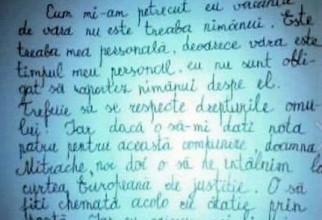 Cum mi-am petrecut eu vacanța
de vară nu este treaba nimănui. Este
treaba mea personală, deoarece vara este
timpul meu personal. eu nu sunt obli-
gat să raportez nimănui despe el.
Trebuie să se respecte drepturile omu-
lui! Iar dacă o să-mi dați nota
patru pentru această compunere, doamna
Mitrache, noi doi o să ne întâlnim la
curtea Europeana de justiție. O să
fiți chemată acolo cu citație prin